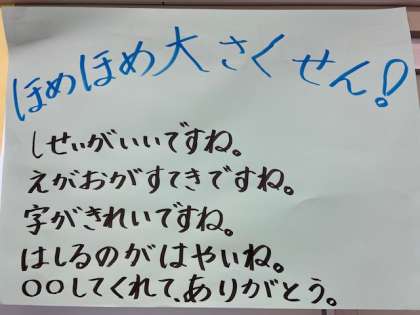 ほめほめ大さくせん!
しせいがいいですね。
えがおがすてきですね。
字がきれいですね。
はしるのがはやいね。
○○してくれて、ありがとう。